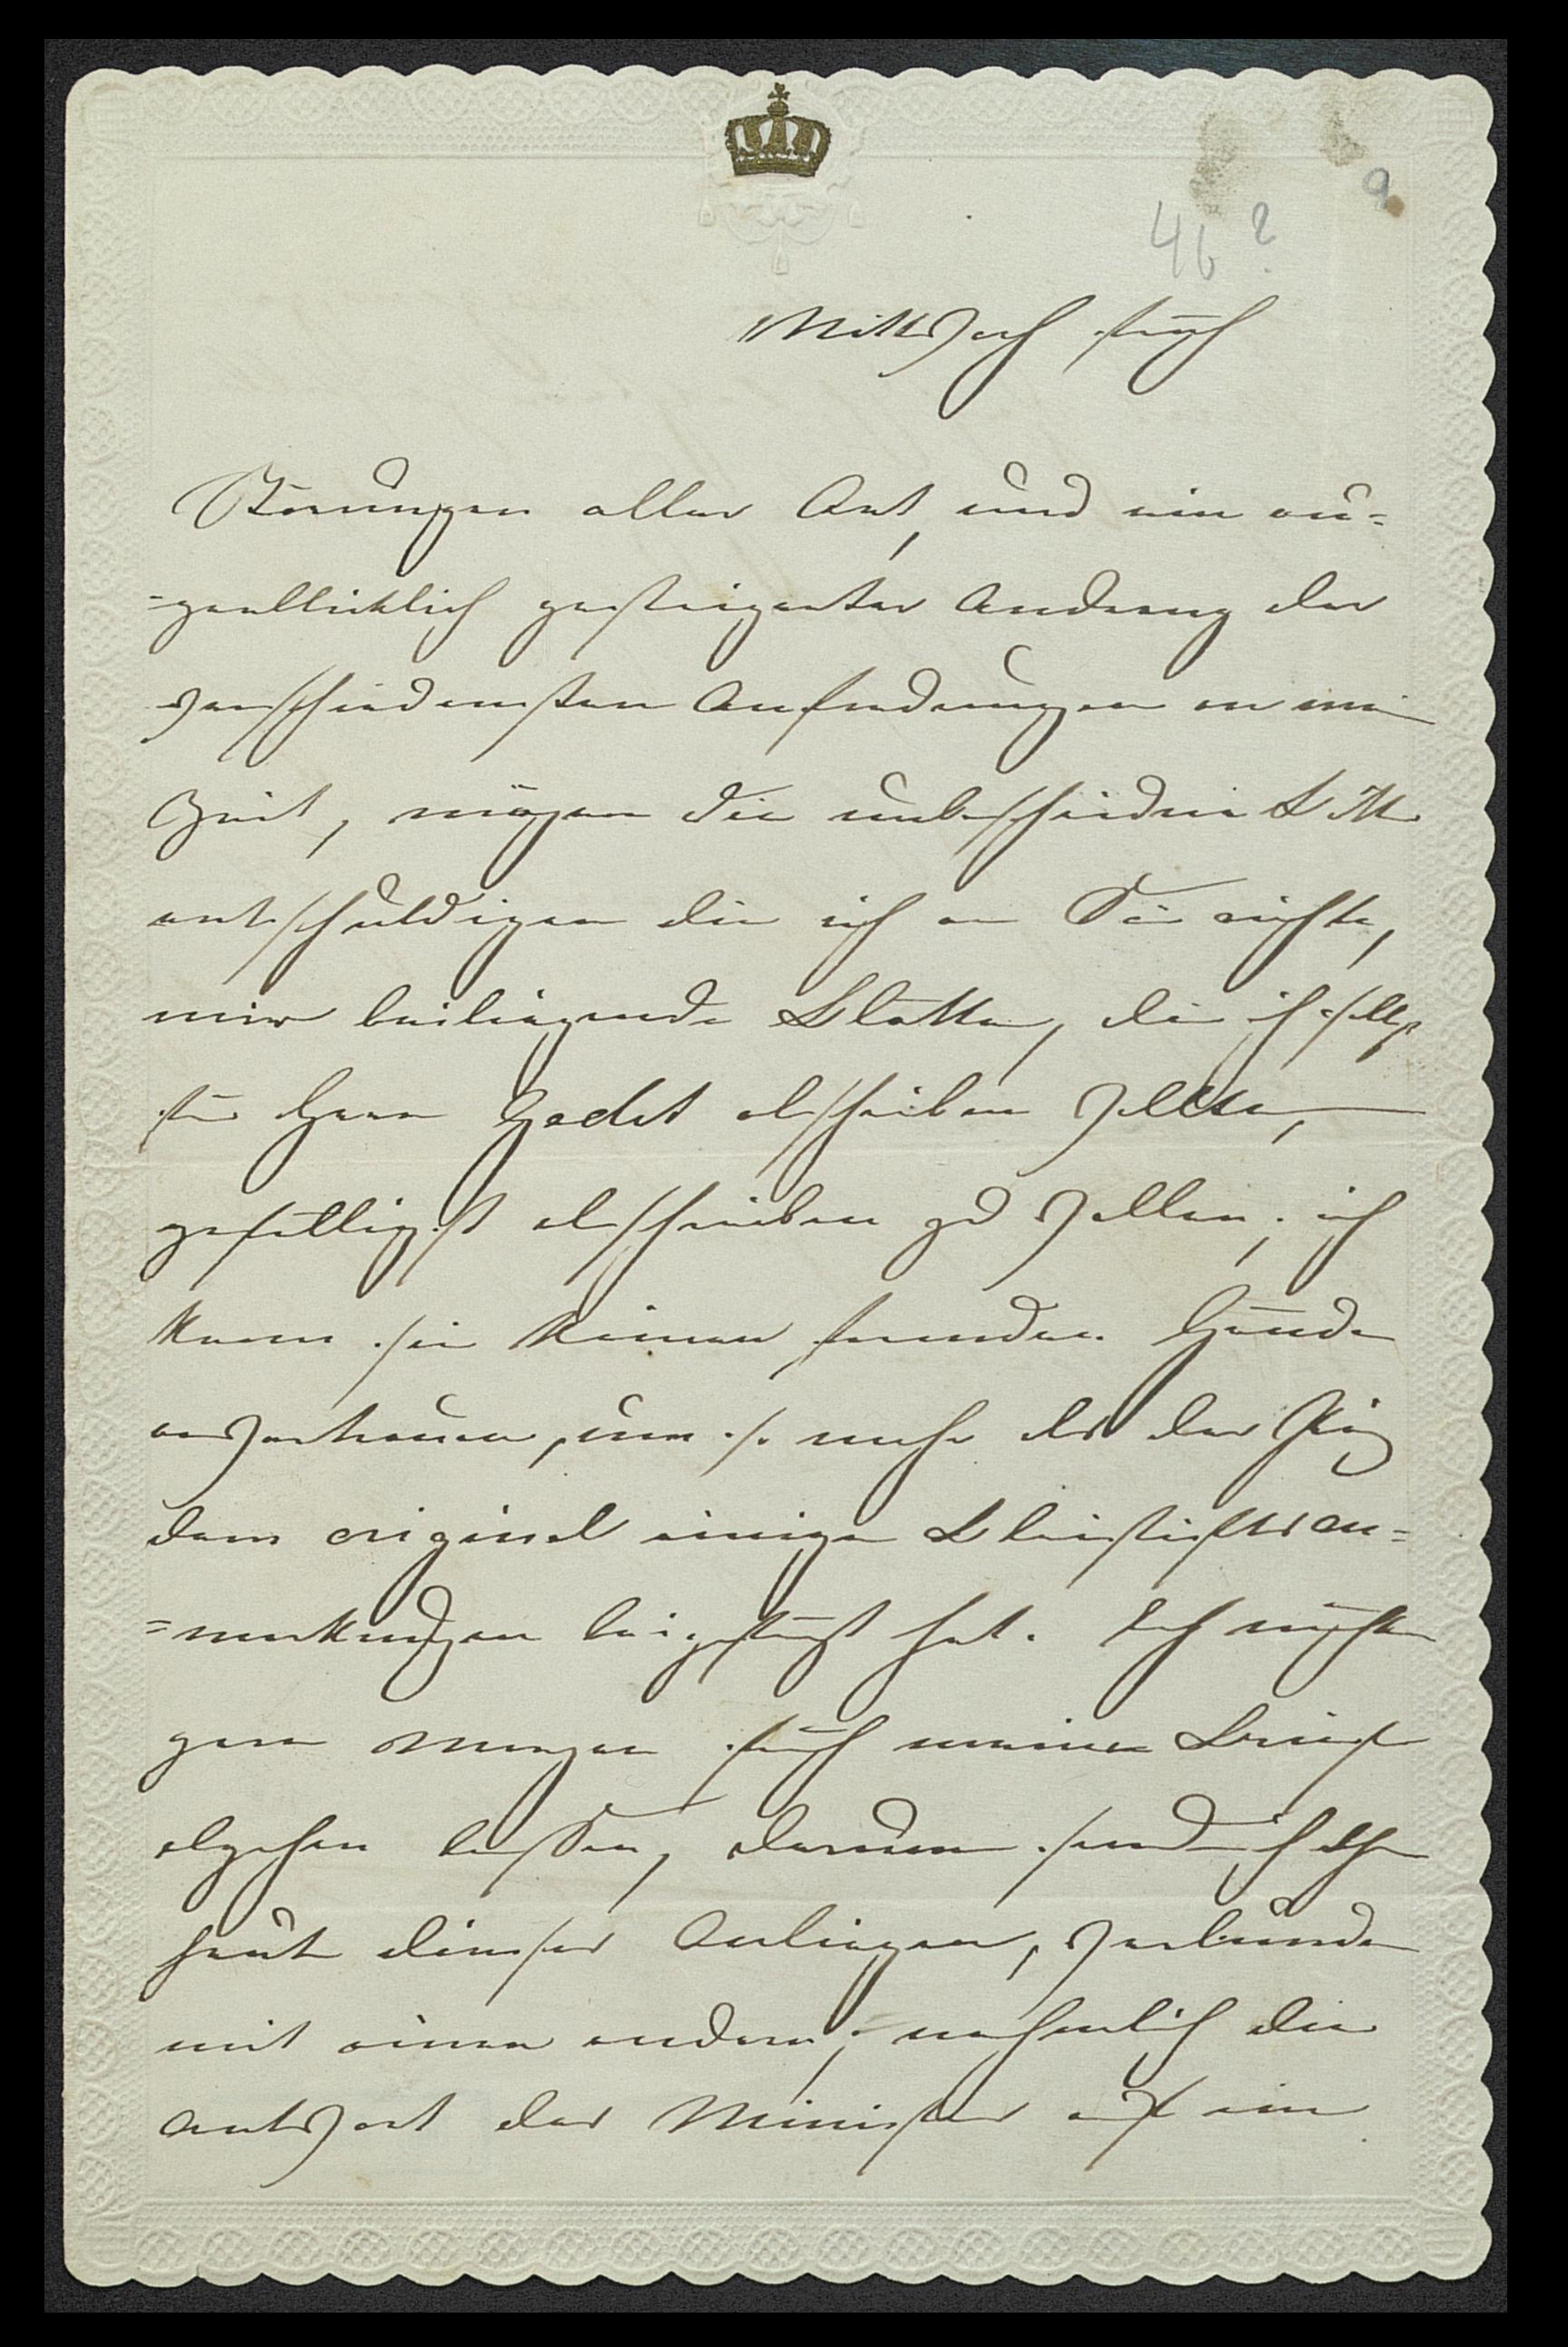 9
46?
Mittwoch früh
Störungen aller Art, und ein au=
=genblicklich gesteigerter Andrang der
verschiedensten Anfordrungen an mein
Zeit, mögen die unbescheidne Bitte
entschuldigen die ich an Sie richte,
mir beiliegende Blätter, die ich selbst
für Herrn Hecht abschreiben wollte,
gefälligst abschreiben zu wollen; ich
kann sie keinen fremden Hände
anvertrauen, um so mehr als der König
dem original einige Bleistifts an=
=merkungen beigefügt hat. Ich möchte
gern morgen früh meine Briefe
abgehen lassen, darum sende ich Ihnen
heute dieses Anliegen, verbunden
mit einem andern; nehmlich die
Antwort des Ministers auf ein